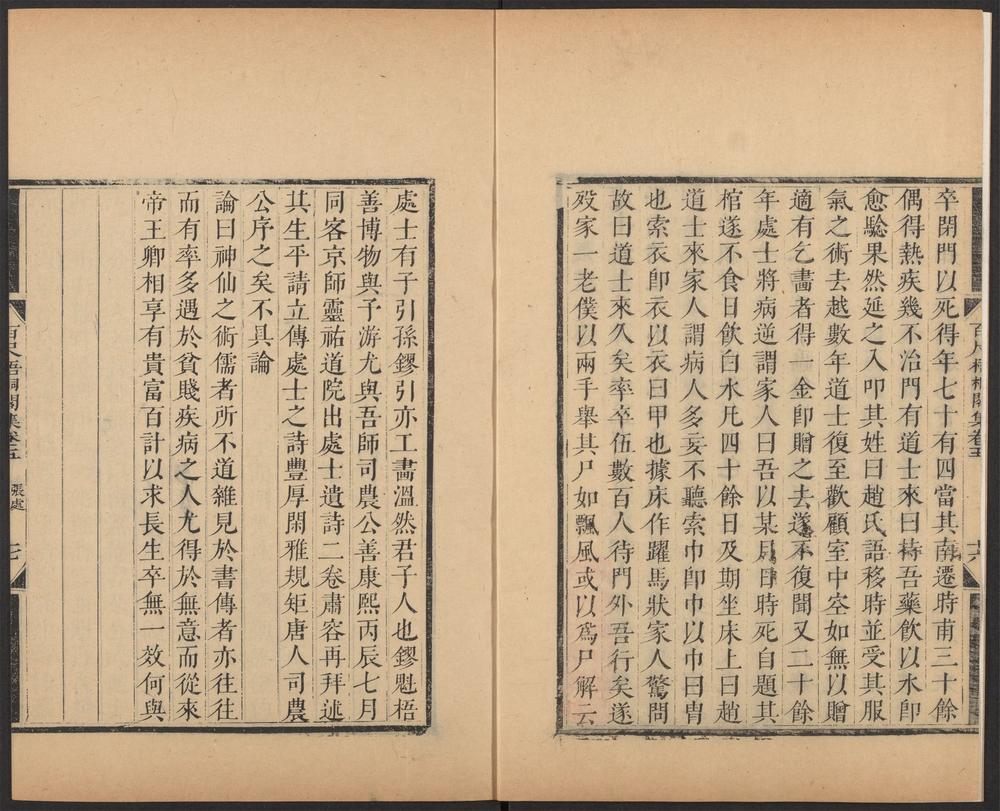 卒閉門以死得年七十有四當其南遷時甫三十餘
偶得熱疾幾不冶門有道士來曰持吾藥飲以水卽
愈騐果然延之入叩其姓曰趙氏語移時並受其服
氣之術去越數年道士復至歡顧室中空如無以贈
適有乞畵者得一金卽贈之去遂不復聞又二十餘
年處士將病逆謂家人曰吾以某月日時死自題其
棺遂不食日飲白水凡四十餘日及期坐床上曰趙
道士來家人謂病人多妄不聽索巾卽巾以巾曰冑
也索衣卽衣以衣曰甲也據床作躍馬狀家人驚問
故曰道士來久矣率卒伍數百人待門外吾行矣遂
歿家一老僕以兩手舉其尸如飄風或以爲尸解云
百尺梧桐閣集卷五
十六
處士有子引孫鏐引亦工畵溫然君子人也鏐魁梧
善博物與予游尤與吾師司農公善康熙丙辰七月
同客京師靈祐道院出處士遺詩二卷肅容再拜述
其生平請立傳處士之詩豐厚閑雅規矩唐人司農
公序之矣不具論
論曰神仙之術儒者所不道雜見於書傳者亦往往
而有率多遇於貧賤疾病之人尤得於無意而從來
帝王卿相享有貴富百計以求長生卒無一效何與
百尺梧桐閣集卷五
張處
七